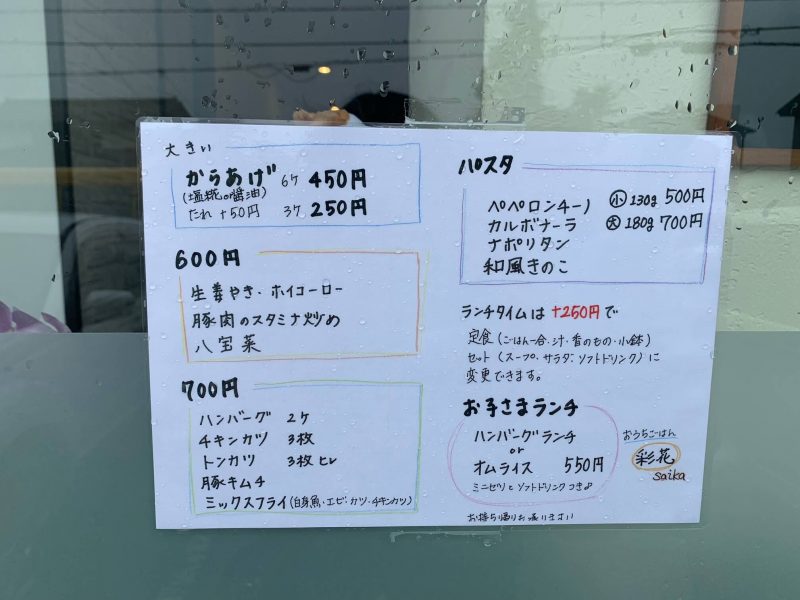 大きい
からあげ 6ケ 450円
(塩糀or醤油)
たれ +50円 3ケ 250円
600円
生姜やき・ホイコーロー
豚肉のスタミナ炒め
八宝菜
700円
ハンバーグ 2ケ
チキンカツ 3枚
トンカツ 3枚 ヒレ
豚キムチ
ミックスフライ(白身魚・エビ・カツ・チキンカツ)
パスタ
ペペロンチーノ 小 130g 500円
カルボナーラ 大 180g 700円
ナポリタン
和風きのこ
ランチタイムは +250円で
定食(ごはん一合・汁・香のもの・小鉢)
セット(スープ、サラダ、ソフトドリンク)に
変更できます。
お子さまランチ
ハンバーグランチ
or
オムライス 550円
ミニゼリーとソフトドリンクつき♪
おうちごはん
彩花
saika
お持ち帰り承ります